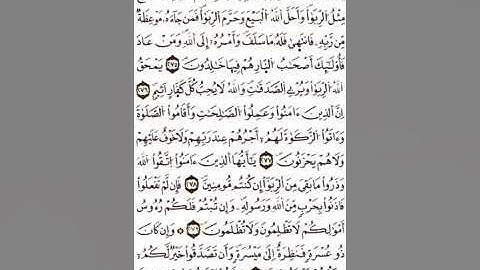 مِثْلُ ٱلرِّبَوٰا۟ وَأَحَلَّ ٱللَّهُ ٱلْبَيْعَ وَحَرَّمَ ٱلرِّبَوٰا۟ فَمَن جَآءَهُۥ مَوْعِظَةٌ
مِّن رَّبِّهِۦ فَٱنتَهَىٰ فَلَهُۥ مَا سَلَفَ وَأَمْرُهُۥٓ إِلَى ٱللَّهِ وَمَنْ عَادَ
فَأُو۟لَٰٓئِكَ أَصْحَٰبُ ٱلنَّارِ هُمْ فِيهَا خَٰلِدُونَ ٢٧٥ يَمْحَقُ
ٱللَّهُ ٱلرِّبَوٰا۟ وَيُرْبِى ٱلصَّدَقَٰتِ وَٱللَّهُ لَا يُحِبُّ كُلَّ كَفَّارٍ أَثِيمٍ ٢٧٦
إِنَّ ٱلَّذِينَ ءَامَنُوا۟ وَعَمِلُوا۟ ٱلصَّٰلِحَٰتِ وَأَقَامُوا۟ ٱلصَّلَوٰةَ
وَءَاتَوُا۟ ٱلزَّكَوٰةَ لَهُمْ أَجْرُهُمْ عِندَ رَبِّهِمْ وَلَا خَوْفٌ عَلَيْهِمْ
وَلَا هُمْ يَحْزَنُونَ ٢٧٧ يَٰٓأَيُّهَا ٱلَّذِينَ ءَامَنُوا۟ ٱتَّقُوا۟ ٱللَّهَ
وَذَرُوا۟ مَا بَقِىَ مِنَ ٱلرِّبَوٰٓا۟ إِن كُنتُم مُّؤْمِنِينَ ٢٧٨ فَإِن لَّمْ تَفْعَلُوا۟
فَأْذَنُوا۟ بِحَرْبٍ مِّنَ ٱللَّهِ وَرَسُولِهِۦ وَإِن تُبْتُمْ فَلَكُمْ رُءُوسُ
أَمْوَٰلِكُمْ لَا تَظْلِمُونَ وَلَا تُظْلَمُونَ ٢٧٩ ۞ وَإِن كَانَ
ذُو عُسْرَةٍ فَنَظِرَةٌ إِلَىٰ مَيْسَرَةٍ وَأَن تَصَدَّقُوا۟ خَيْرٌ لَّكُمْ